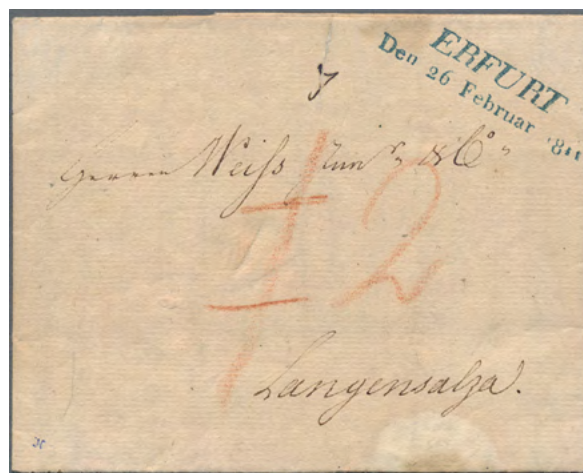 ERFURT
Den 26 Februar 1811
Herrn Weiss & Co
12
Langensalza.